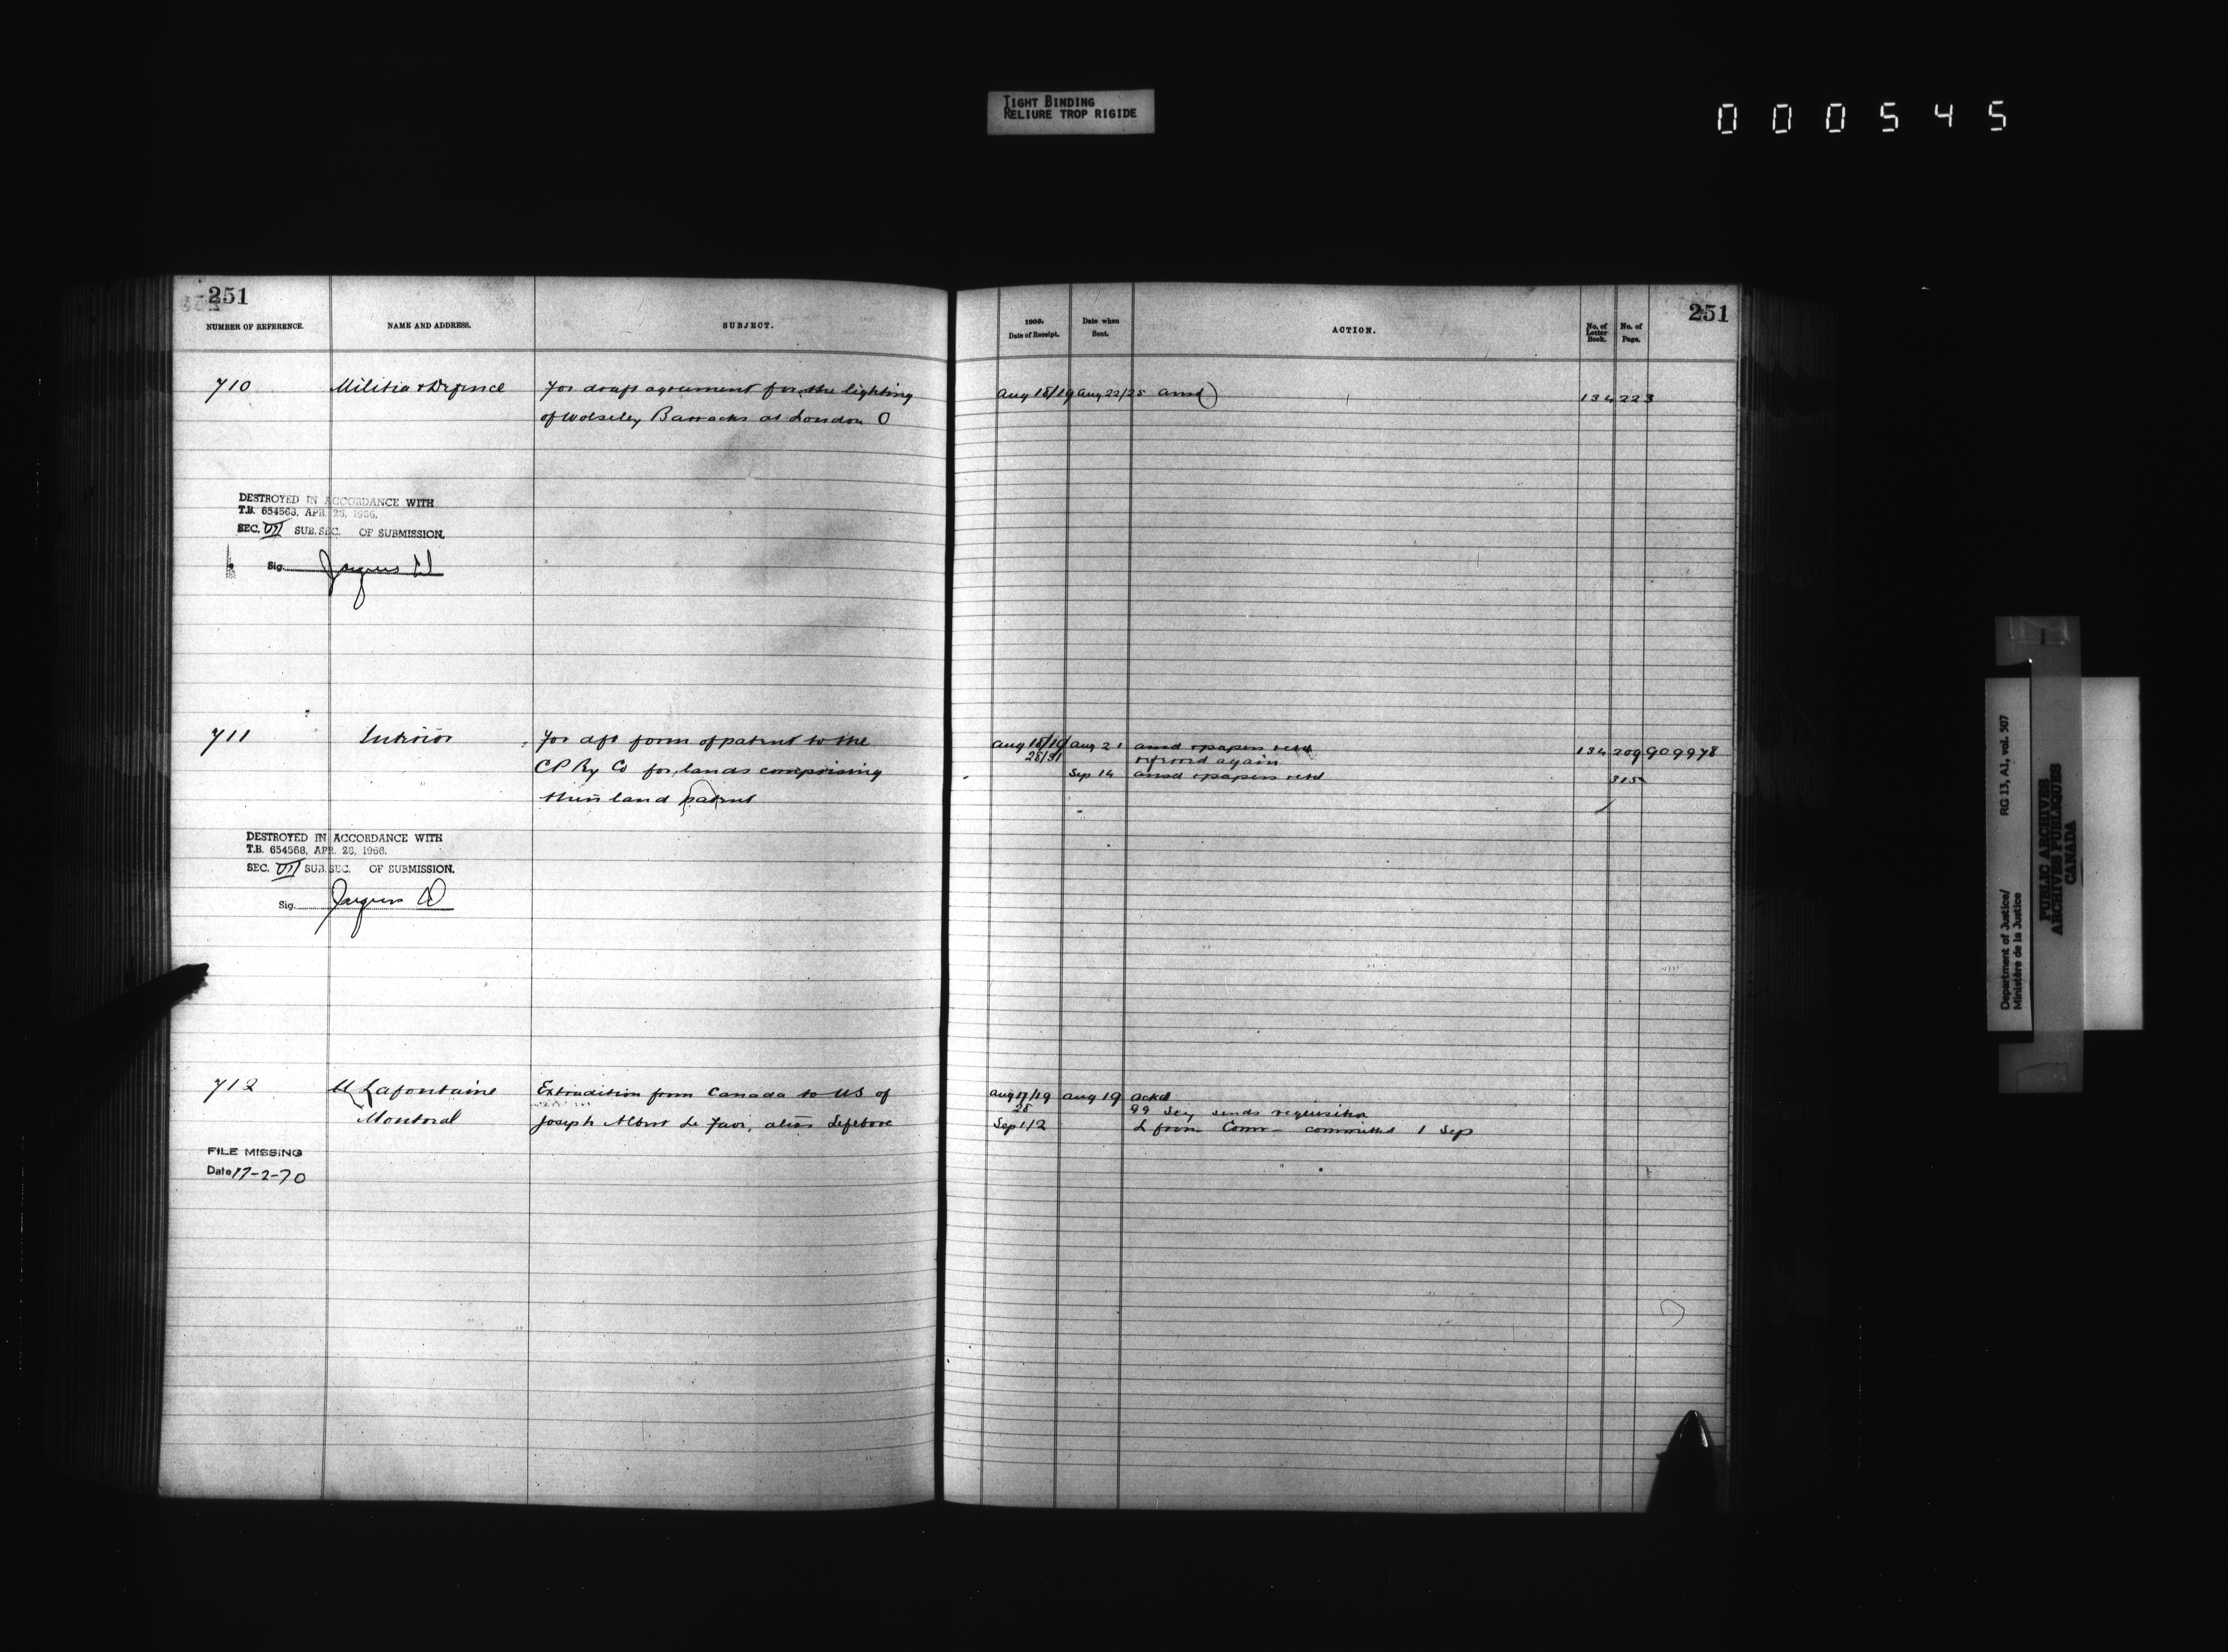 TIGHT BINDING
RELIURE TROP RIGIDE
000545
251
NUMBER OF REFERENCE. NAME AND ADDRESS. SUBJECT.
710 Militia & Defence For draft agreement for the lighting
of Wolseley Barracks at London O
DESTROYED IN ACCORDANCE WITH
T.B. 654568, APR. 28, 1966.
SEC. VII SUB.SEC. OF SUBMISSION.
Sig.
711 Interior For dft form of patent to the
CP Ry Co for lands comprising
their land patent
DESTROYED IN ACCORDANCE WITH
T.B. 654568, APR. 28, 1966.
SEC. VII SUB.SEC. OF SUBMISSION.
Sig.
712 U Lafontaine Extradition from Canada to US of
Montreal Joseph Albert Le , alias Lefebvre
FILE MISSING
Date 17-2-70
251
1908.
Date of Receipt. Date when Sent. ACTION. No. of Letter Book. No. of Page.
Aug 18/19 Aug 22/25 ansd 134 223
Aug 18/19 Aug 21 ansd & papers retd 134 209 909978
28/31 referred again
Sep 14 ansd & papers retd 315
Aug 17/19 Aug 19 ackd
28 sends requisition
Sep 1/2 L from Comr committed 1 Sep
Department of Justice/ RG 13, A1, vol. 507
Ministère de la Justice
PUBLIC ARCHIVES
ARCHIVES PUBLIQUES
CANADA